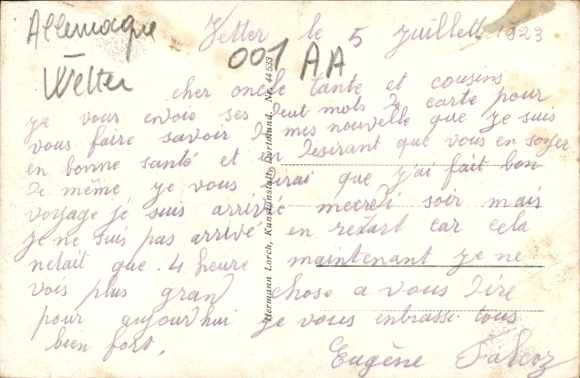 Allemagne
Welter
001 AA
Vetter le 5 juillett 1923
cher oncle tante et cousins
je vous envoie ses deut mots de carte pour
vous faire savoir de mes nouvelle que je suis
en bonne santé et en desirant que vous en soyer
de même je vous dirai que j'ai fait bon
voyage je suis arrivé mecredi soir mais
je ne suis pas arrivé en retart car cela
netait que 4 heure maintenant je ne
vois plus gran chose a vous dire
pour aujourd'hui je vous enbrasse tous
bien fort.
Eugène
Hermann Lorch, Kunstanstalt, Dortmund. Nr. 44533